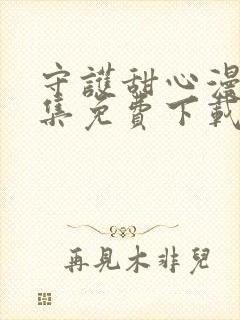 守護甜心漫
集免費下載
再見木非兒